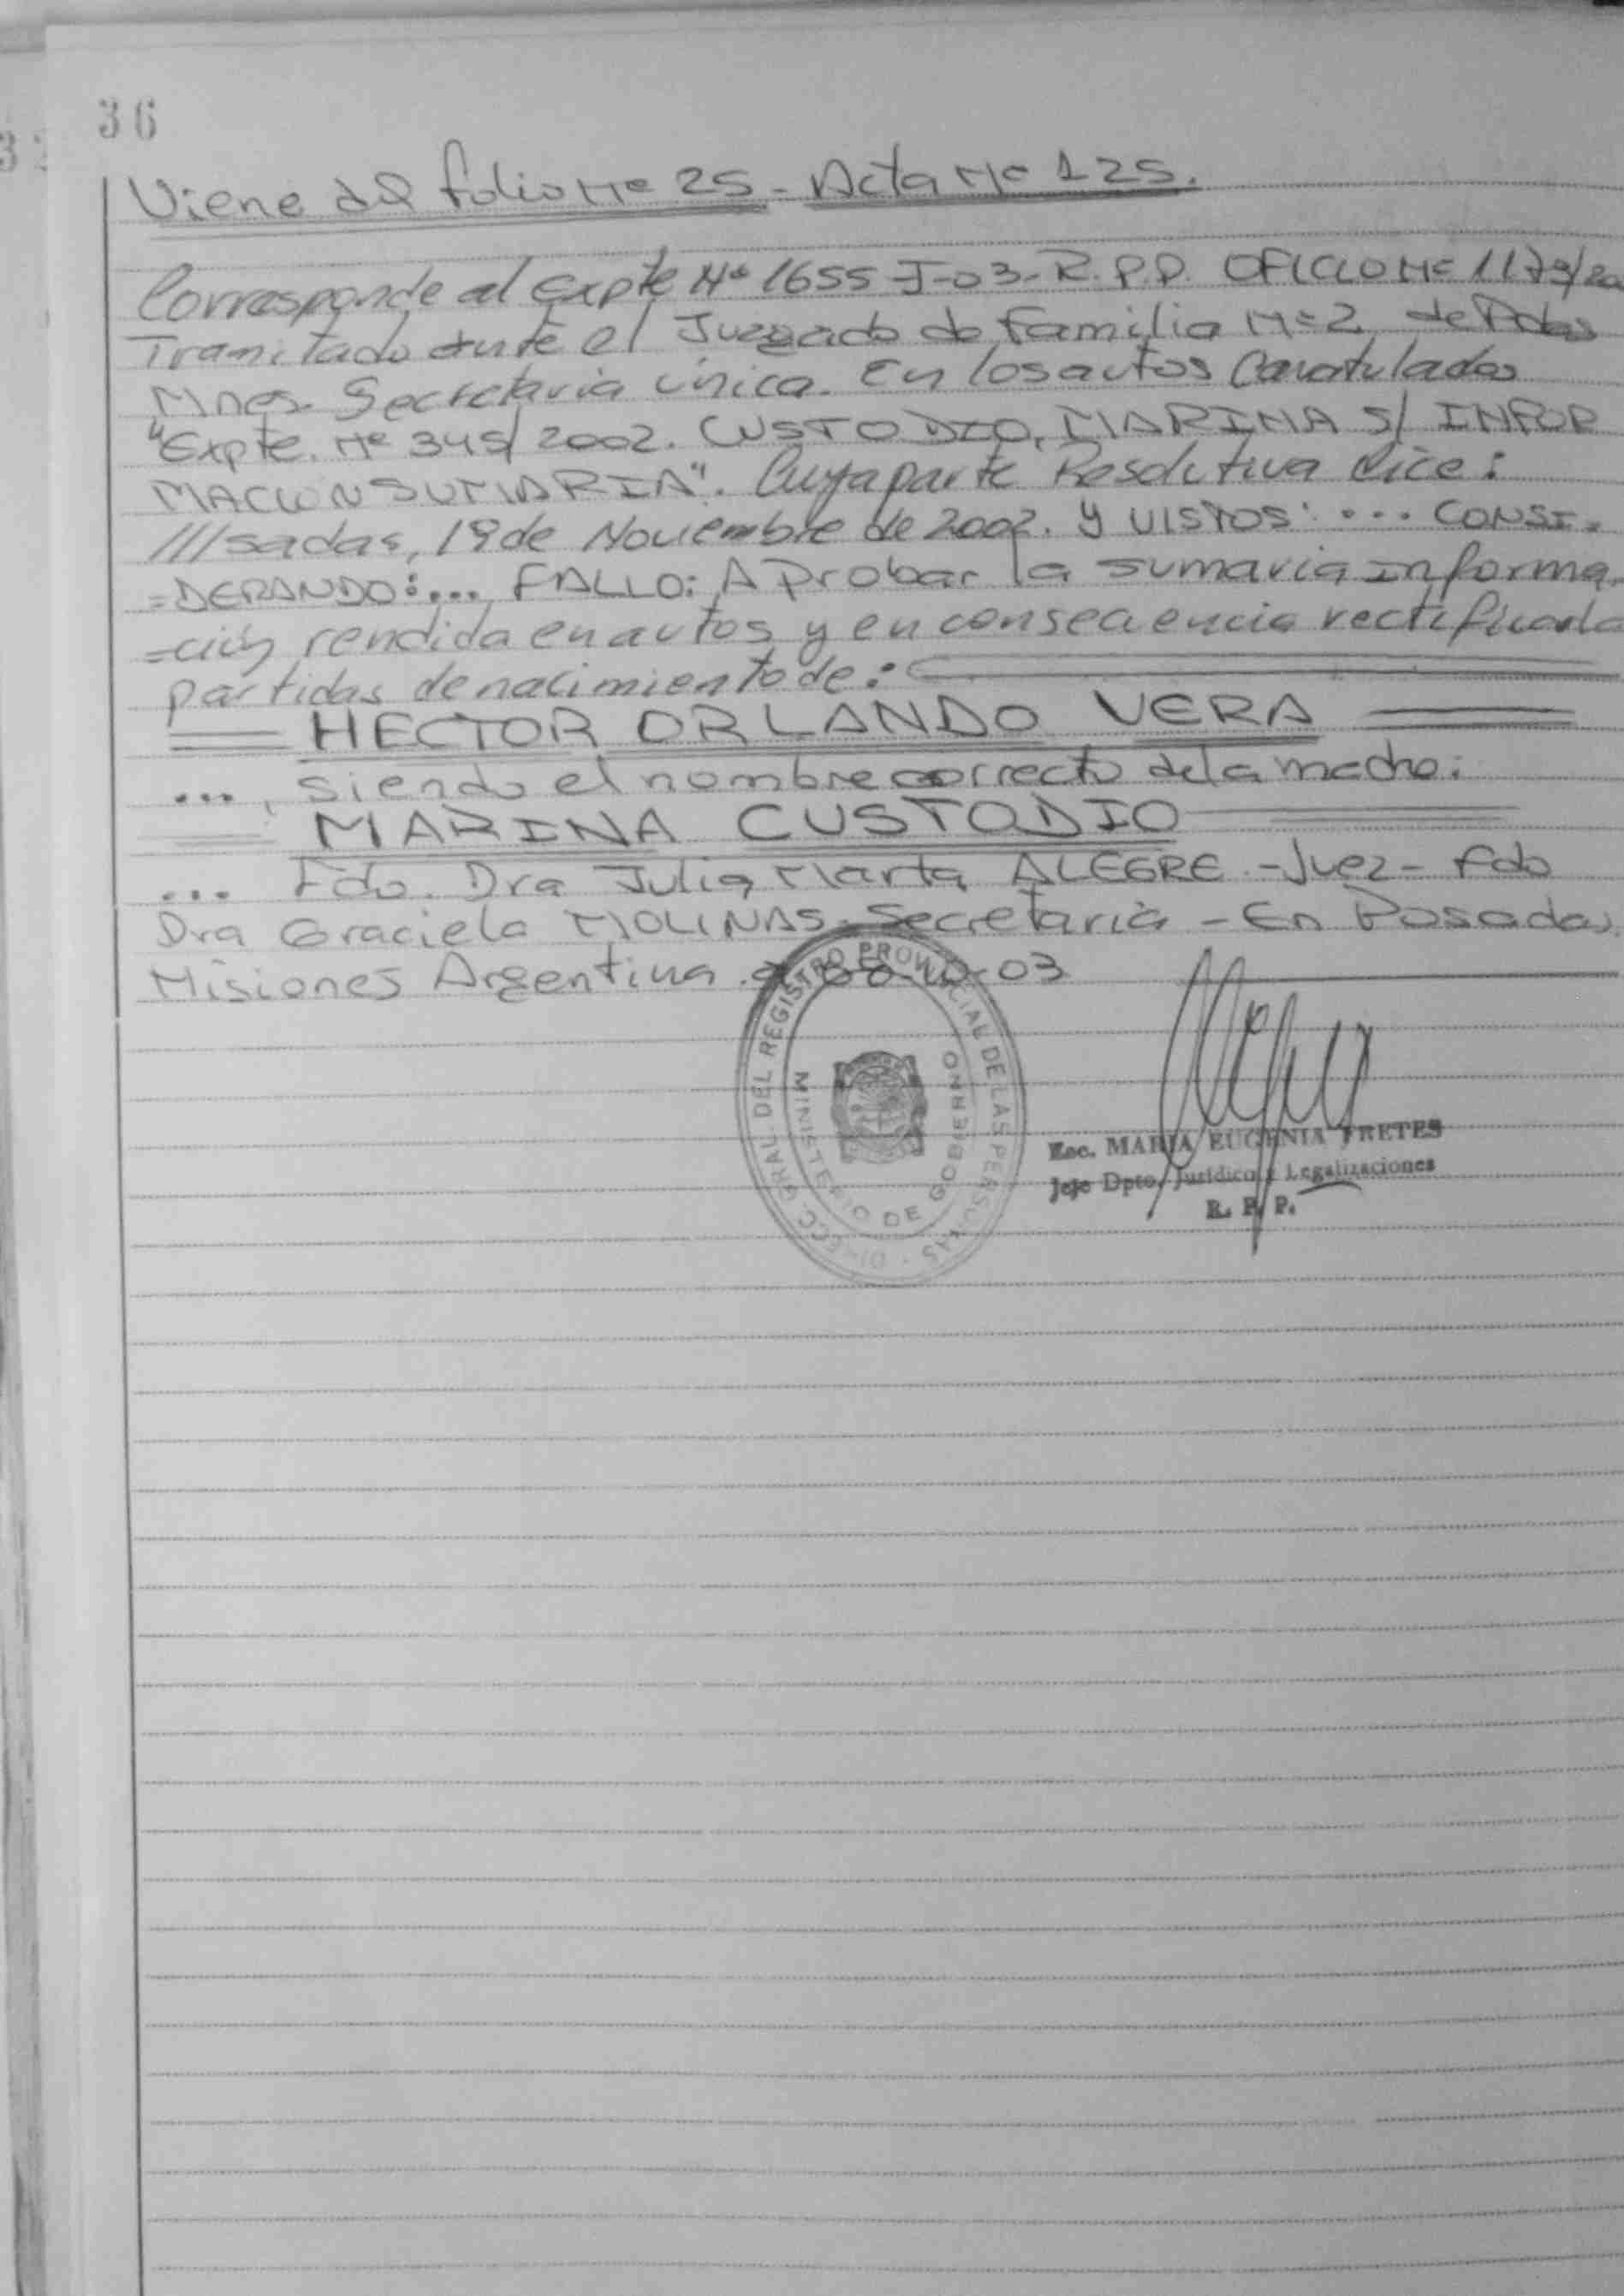 36
Viene del folio Nº 25 - Acta Nº 125.
Corresponde al Expte Nº 1655-J-03-R.P.P. OFICIO Nº 1173/20
Tramitado ante el Juzgado de Familia Nº 2 de Pdas
Mnes. Secretaria única. En los autos Caratulados
"Expte. Nº 345/2002. CUSTODIO, MARINA S/ INFOR
MACION SUMARIA". Cuya parte Resolutiva dice:
///sadas, 19 de Noviembre de 2002. Y VISTOS: ... CONSI.
=DERANDO:... FALLO: Aprobar la sumaria informa.
=ción rendida en autos y en consecuencia rectificar la
partidas de nacimiento de:
HECTOR ORLANDO VERA
..., siendo el nombre correcto de la madre:
MARINA CUSTODIO
... Fdo. Dra Julia Marta ALEGRE -Juez- Fdo
Dra Graciela MOLINAS. Secretaria - En Posadas
Misiones Argentina. 03
DIRECC. GRAL. DEL REGISTRO PROVINCIAL DE LAS PERSONAS
MINISTERIO DE GOBIERNO
Esc. MARIA EUGENIA FRETES
Jefe Dpto. Jurídico y Legalizaciones
R. P. P.